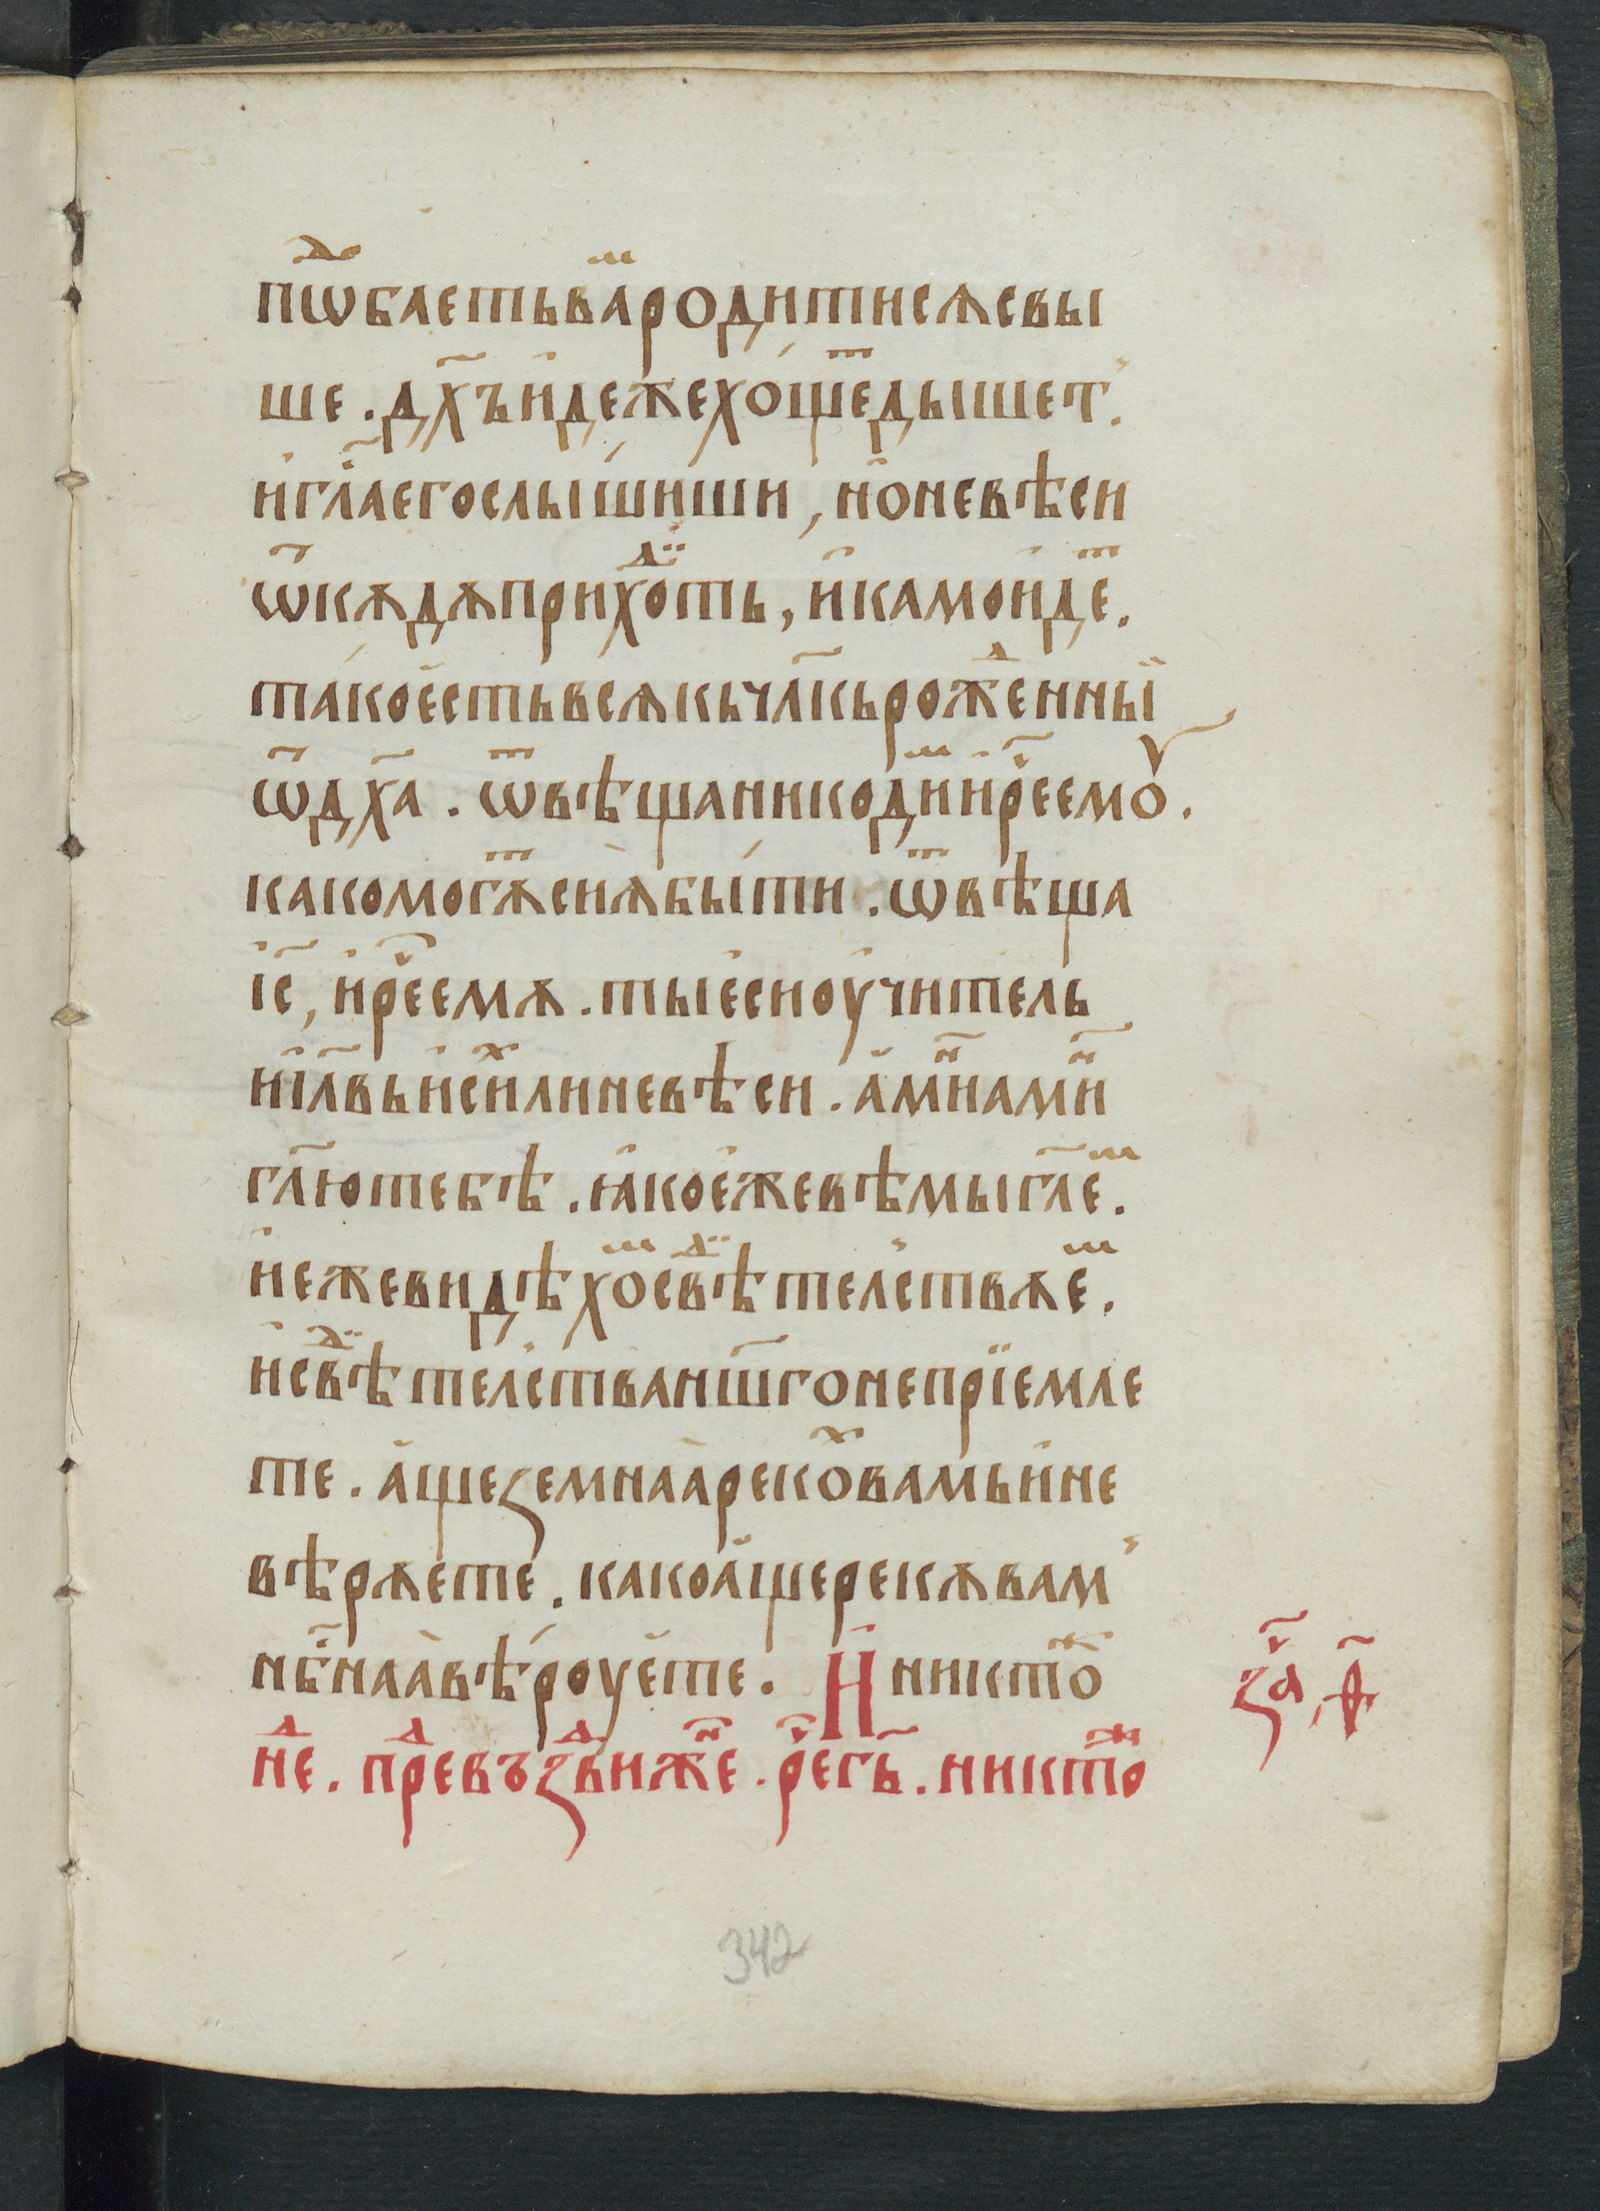 пѡⷣбаеть ваⷨ родитисѧ свы
ше. дх҃ъ идеже хо́щеⷮ дышет̾.
и҆ гл҃а его слы́шиши, но не вѣси
ѿкѫдѫ прихоⷣть, и҆ камо и҆деⷮ.
та́ко е҆сть всѧкь чл҃кь рожⷣенныи
ѿ дх҃а. ѿвѣща никодиⷨ и҆ рⷱ҇е емоу.
како могѫⷮ сиа̀ бы́ти. ѿвѣща
і҆с҃, и҆ рⷱ҇е емѫ. ты е҆си оу҆читель
і҆и҃лвь и҆ сиⷯ ли не вѣси. а҆миⷩ҇ амиⷩ҇
гл҃ю тебѣ. ꙗ҆ко е҆же вѣмы гл҃еⷨ.
и҆ еже видѣхоⷨ свⷣѣтел̾ствѫеⷨ.
и҆ свⷣѣтелства нш҃го не прїемле
те. а҆ще земнаа̀ рекоⷯ вамь и҆ не
вѣрѫете. како а҆ще рекѫ вам̾
нбⷭ҇наа̀ вѣ́роуете. И никтоⷤ
неⷣ. прⷣевъзвⷣижеⷩ҇. рⷱ҇е гь҃. никтоⷤ
заⷱ҇, ѳ҃
342